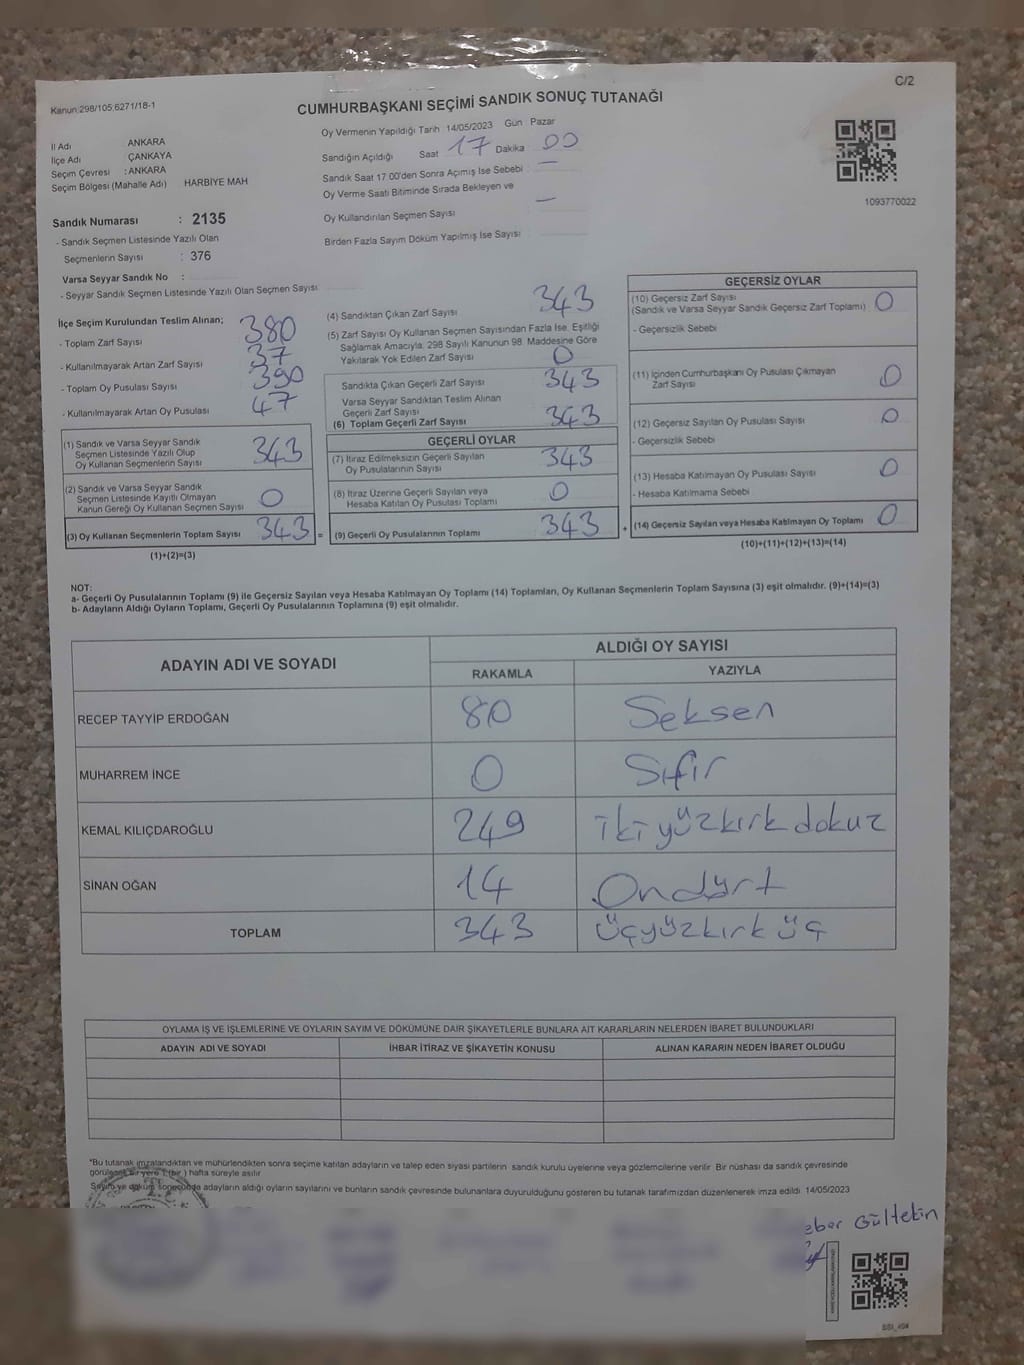 Kanun:298/105;6271/18-1
C/2
CUMHURBAŞKANI SEÇİMİ SANDIK SONUÇ TUTANAĞI
İl Adı ANKARA
İlçe Adı ÇANKAYA
Seçim Çevresi : ANKARA
Seçim Bölgesi (Mahalle Adı) HARBİYE MAH
Sandık Numarası : 2135
- Sandık Seçmen Listesinde Yazılı Olan
Seçmenlerin Sayısı : 376
Varsa Seyyar Sandık No :
- Seyyar Sandık Seçmen Listesinde Yazılı Olan Seçmen Sayısı
Oy Vermenin Yapıldığı Tarih 14/05/2023 Gün Pazar
Sandığın Açıldığı Saat 17 Dakika 00
Sandık Saat 17:00'den Sonra Açımış İse Sebebi —
Oy Verme Saati Bitiminde Sırada Bekleyen ve
Oy Kullandırılan Seçmen Sayısı —
Birden Fazla Sayım Döküm Yapılmış İse Sayısı
1093770022
İlçe Seçim Kurulundan Teslim Alınan;
- Toplam Zarf Sayısı 380
- Kullanılmayarak Artan Zarf Sayısı 37
- Toplam Oy Pusulası Sayısı 390
- Kullanılmayarak Artan Oy Pusulası 47
(1) Sandık ve Varsa Seyyar Sandık
Seçmen Listesinde Yazılı Olup
Oy Kullanan Seçmenlerin Sayısı 343
(2) Sandık ve Varsa Seyyar Sandık
Seçmen Listesinde Kayıtlı Olmayan
Kanun Gereği Oy Kullanan Seçmen Sayısı 0
(3) Oy Kullanan Seçmenlerin Toplam Sayısı 343 =
(1)+(2)=(3)
(4) Sandıktan Çıkan Zarf Sayısı 343
(5) Zarf Sayısı Oy Kullanan Seçmen Sayısından Fazla İse, Eşitliği
Sağlamak Amacıyla; 298 Sayılı Kanunun 98. Maddesine Göre
Yakılarak Yok Edilen Zarf Sayısı 0
Sandıkta Çıkan Geçerli Zarf Sayısı 343
Varsa Seyyar Sandıktan Teslim Alınan
Geçerli Zarf Sayısı
(6) Toplam Geçerli Zarf Sayısı 343
GEÇERLİ OYLAR
(7) İtiraz Edilmeksizin Geçerli Sayılan
Oy Pusulalarının Sayısı 343
(8) İtiraz Üzerine Geçerli Sayılan veya
Hesaba Katılan Oy Pusulası Toplamı 0
(9) Geçerli Oy Pusulalarının Toplamı 343 +
GEÇERSİZ OYLAR
(10) Geçersiz Zarf Sayısı
(Sandık ve Varsa Seyyar Sandık Geçersiz Zarf Toplamı) 0
- Geçersizlik Sebebi
(11) İçinden Cumhurbaşkanı Oy Pusulası Çıkmayan
Zarf Sayısı 0
(12) Geçersiz Sayılan Oy Pusulası Sayısı 0
- Geçersizlik Sebebi
(13) Hesaba Katılmayan Oy Pusulası Sayısı 0
- Hesaba Katılmama Sebebi
(14) Geçersiz Sayılan veya Hesaba Katılmayan Oy Toplamı 0
(10)+(11)+(12)+(13)=(14)
NOT:
a- Geçerli Oy Pusulalarının Toplamı (9) ile Geçersiz Sayılan veya Hesaba Katılmayan Oy Toplamı (14) Toplamları, Oy Kullanan Seçmenlerin Toplam Sayısına (3) eşit olmalıdır. (9)+(14)=(3)
b- Adayların Aldığı Oyların Toplamı, Geçerli Oy Pusulalarının Toplamına (9) eşit olmalıdır.
ADAYIN ADI VE SOYADI ALDIĞI OY SAYISI
RAKAMLA YAZIYLA
RECEP TAYYİP ERDOĞAN 80 Seksen
MUHARREM İNCE 0 Sıfır
KEMAL KILIÇDAROĞLU 249 ikiyüzkırk dokuz
SİNAN OĞAN 14 Ondört
TOPLAM 343 üçyüzkırk üç
OYLAMA İŞ VE İŞLEMLERİNE VE OYLARIN SAYIM VE DÖKÜMÜNE DAİR ŞİKAYETLERLE BUNLARA AİT KARARLARIN NELERDEN İBARET BULUNDUKLARI
ADAYIN ADI VE SOYADI İHBAR İTİRAZ VE ŞİKAYETİN KONUSU ALINAN KARARIN NEDEN İBARET OLDUĞU
*Bu tutanak imzalandıktan ve mühürlendikten sonra seçime katılan adayların ve talep eden siyasi partilerin sandık kurulu üyelerine veya gözlemcilerine verilir. Bir nüshası da sandık çevresinde
görülecek bir yere 1 (bir) hafta süreyle asılır
Sayım ve döküm sonucunda adayların aldığı oyların sayılarını ve bunların sandık çevresinde bulunanlara duyurulduğunu gösteren bu tutanak tarafımızdan düzenlenerek imza edildi. 14/05/2023
T.C.
Gültekin